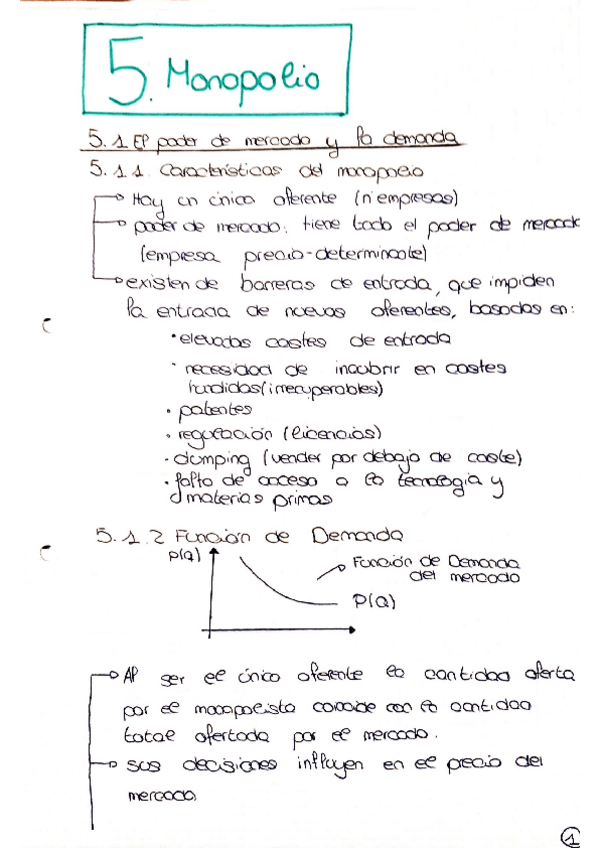 5. Monopolio
5.1 El poder de mercado y la demanda
5.1.1. Características del monopolio
Hay un único oferente (nº empresas)
poder de mercado: tiene todo el poder de mercado
(empresa precio-determinante)
existen de barreras de entrada, que impiden
la entrada de nuevos oferentes, basadas en:
• elevados costes de entrada
• necesidad de incubrir en costes
hundidos (irrecuperables)
• patentes
• regulación (licencias)
• dumping (vender por debajo de coste)
• falta de acceso a la tecnología y
materias primas
5.1.2 Función de Demanda
P(Q)
Función de Demanda
del mercado
P(Q)
Al ser el único oferente la cantidad oferta
por el monopolista coincide con la cantidad
total ofertada por el mercado.
sus decisiones influyen en el precio del
mercado
1